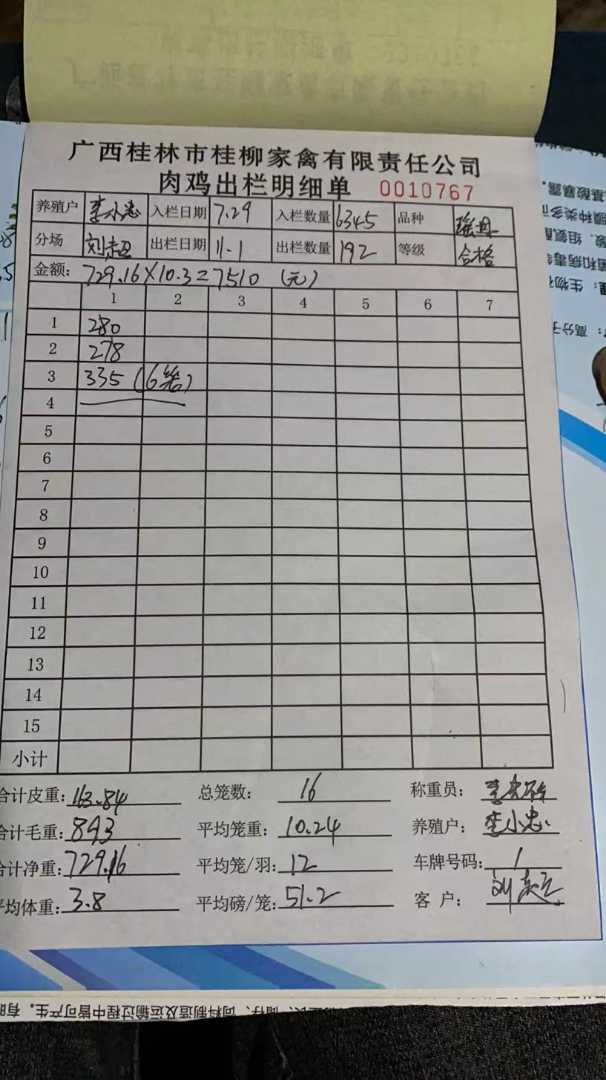 广西桂林市桂柳家禽有限责任公司
肉鸡出栏明细单 0010767
养殖户 李小忠 入栏日期 7.29 入栏数量 6345 品种
分场 出栏日期 11.1 出栏数量 192 等级 合格
金额: 729.16×10.3=7510 (元)
1 2 3 4 5 6 7
1 280
2 278
3 335 (6笼)
4
5
6
7
8
9
10
11
12
13
14
15
小计
合计皮重: 163.84 总笼数: 16 称重员:
合计毛重: 893 平均笼重: 10.24 养殖户: 李小忠
合计净重: 729.16 平均笼/羽: 12 车牌号码: 1
平均体重: 3.8 平均磅/笼: 51.2 客户: